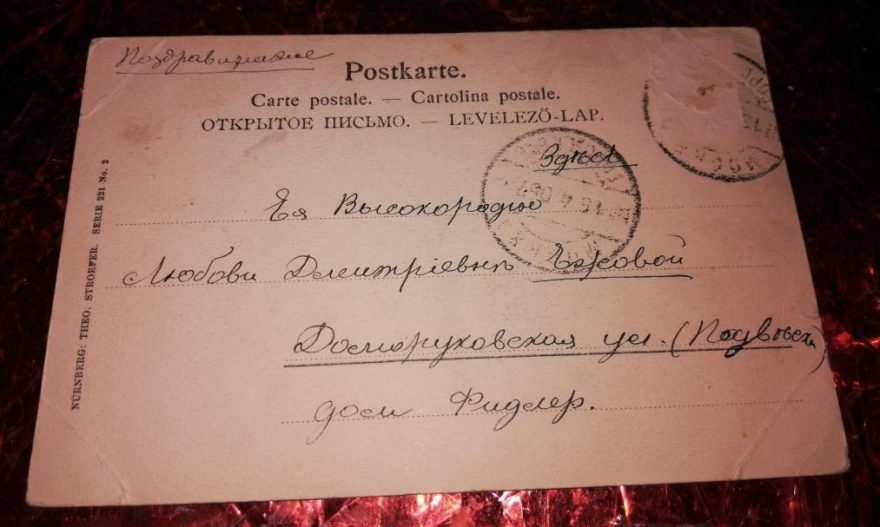 Поздравительное
Postkarte.
Carte postale. — Cartolina postale.
ОТКРЫТОЕ ПИСЬМО. — LEVELEZŐ-LAP.
Здѣсь
Ея Высокородію
Любови Дмитріевнѣ
Долгоруковская ул. (Подвѣски
домъ Фидлер.
NÜRNBERG: THEO. STROEFER. SERIE 221 No. 2
МОСКВА